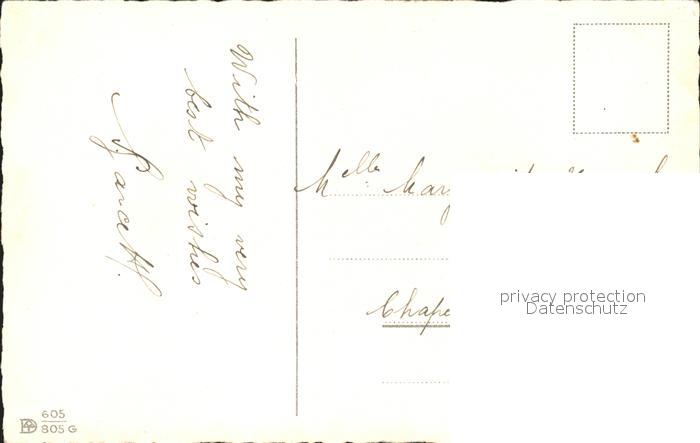 With my very
best wishes
Melle
Chape
privacy protection
Datenschutz
605
805 G